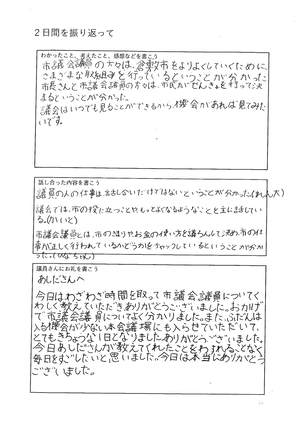 2日間を振り返って
わかったこと、考えたこと、感想などを書こう
市議会議員の方々は、倉敷市をよりよくしていくために、
さまざまな取り組みを行っているということが分かった
市長さんと市議会議員の方々は、市民がせんきょを行って決
まるということが分かった。
議会はいつでも見ることができるから機会があれば見てみた
いです。
話し合った内容を書こう
議員の人の仕事は、話し合いだけではないということが分かった(れん太)
議会では、市の役に立つことや、もっとよくなるようなことを主に話してい
る。(かいと)
市議会議員とは、市のきまりやお金の使い方を議ろんして決め、市の仕
事が正しく行われているかどうかをチェックしているということが分か
った。(ひなちゃん)
議員さんにお礼を書こう
あしださんへ
今日はわざわざ時間を取って市議会議員についてく
わしく教えていただきありがとうございました。おかげ
で市議会議員についてよく分かりました。また、ふだんは
入る機会が少ない本会議場にも入らせていただいて、
とてもきちょうな1日となりました。ありがとうございました。
今日あしださんが教えてくれたことをわすれることなく
毎日をすごしたいと思いました。今日は本当にありがとう
ございました。